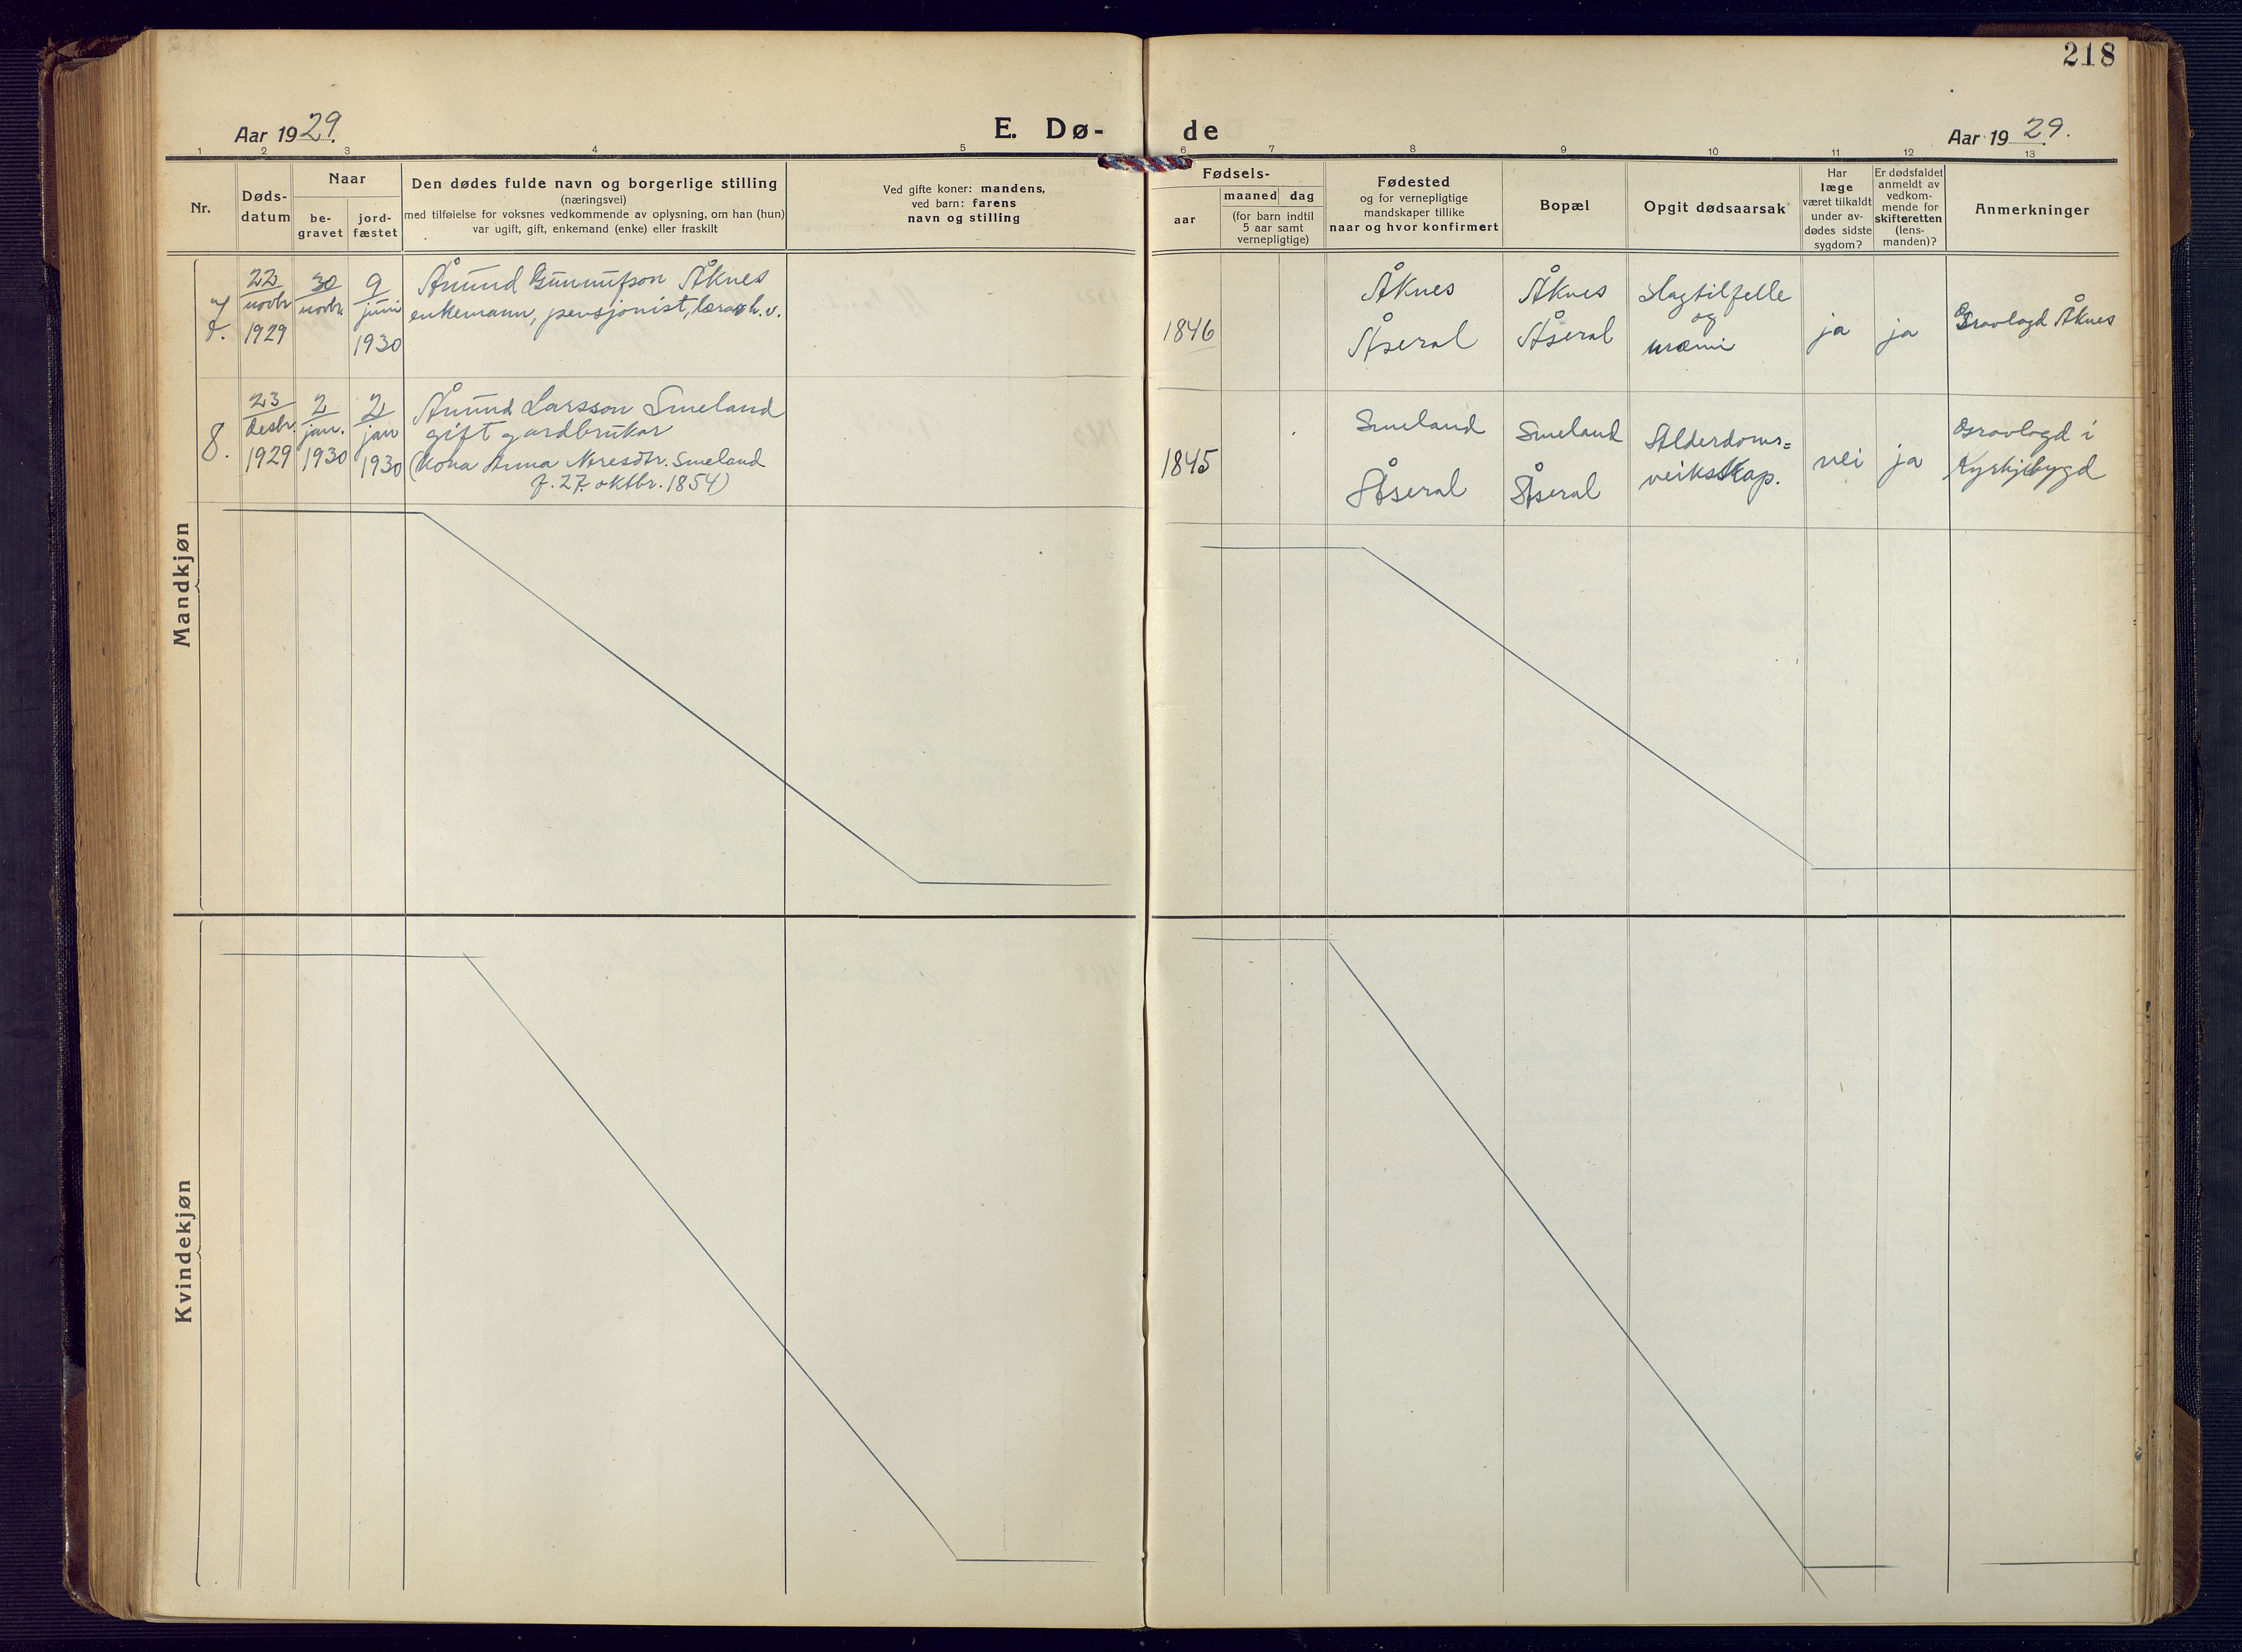 218
Aar 1929.
E. Dø-
de
Aar 1929.
1 2 3 4 5 6 7 8 9 10 11 12 13
Nr.
Døds-
datum
Naar
be-
gravet
jord-
fæstet
Den dødes fulde navn og borgerlige stilling
(næringsvei)
med tilføielse for voksnes vedkommende av oplysning, om han (hun)
var ugift, gift, enkemand (enke) eller fraskilt
Ved gifte koner: mandens,
ved barn: farens
navn og stilling
Fødsels-
aar
maaned dag
(for barn indtil
5 aar samt
vernepligtige)
Fødested
og for vernepligtige
mandskaper tillike
naar og hvor konfirmert
Bopæl
Opgit dødsaarsak
Har
læge
været tilkaldt
under av-
dødes sidste
sygdom?
Er dødsfaldet
anmeldt av
vedkom-
mende for
skifteretten
(lens-
manden)?
Anmerkninger
Mandkjøn
7.
22
novbr
1929
30
novbr.
9
juni
1930
Ånund Gunnufson Åknes
enkemann, pensjonist, lærar h. v.
1846
Åknes
Åseral
Åknes
Åseral
Slagtilfelle
og
uræmi
ja
ja
Gravlagd Åknes
8.
23
desbr.
1929
2
jan.
1930
2
jan
1930
Ånund Larsson Smeland
gift gardbrukar
(Kona Anna Neresdtr. Smeland
f. 27. oktbr. 1854)
1845
Smeland
Åseral
Smeland
Åseral
Alderdoms=
veikskap.
nei
ja
Gravlagd i
Kyrkjebygd
Kvindekjøn